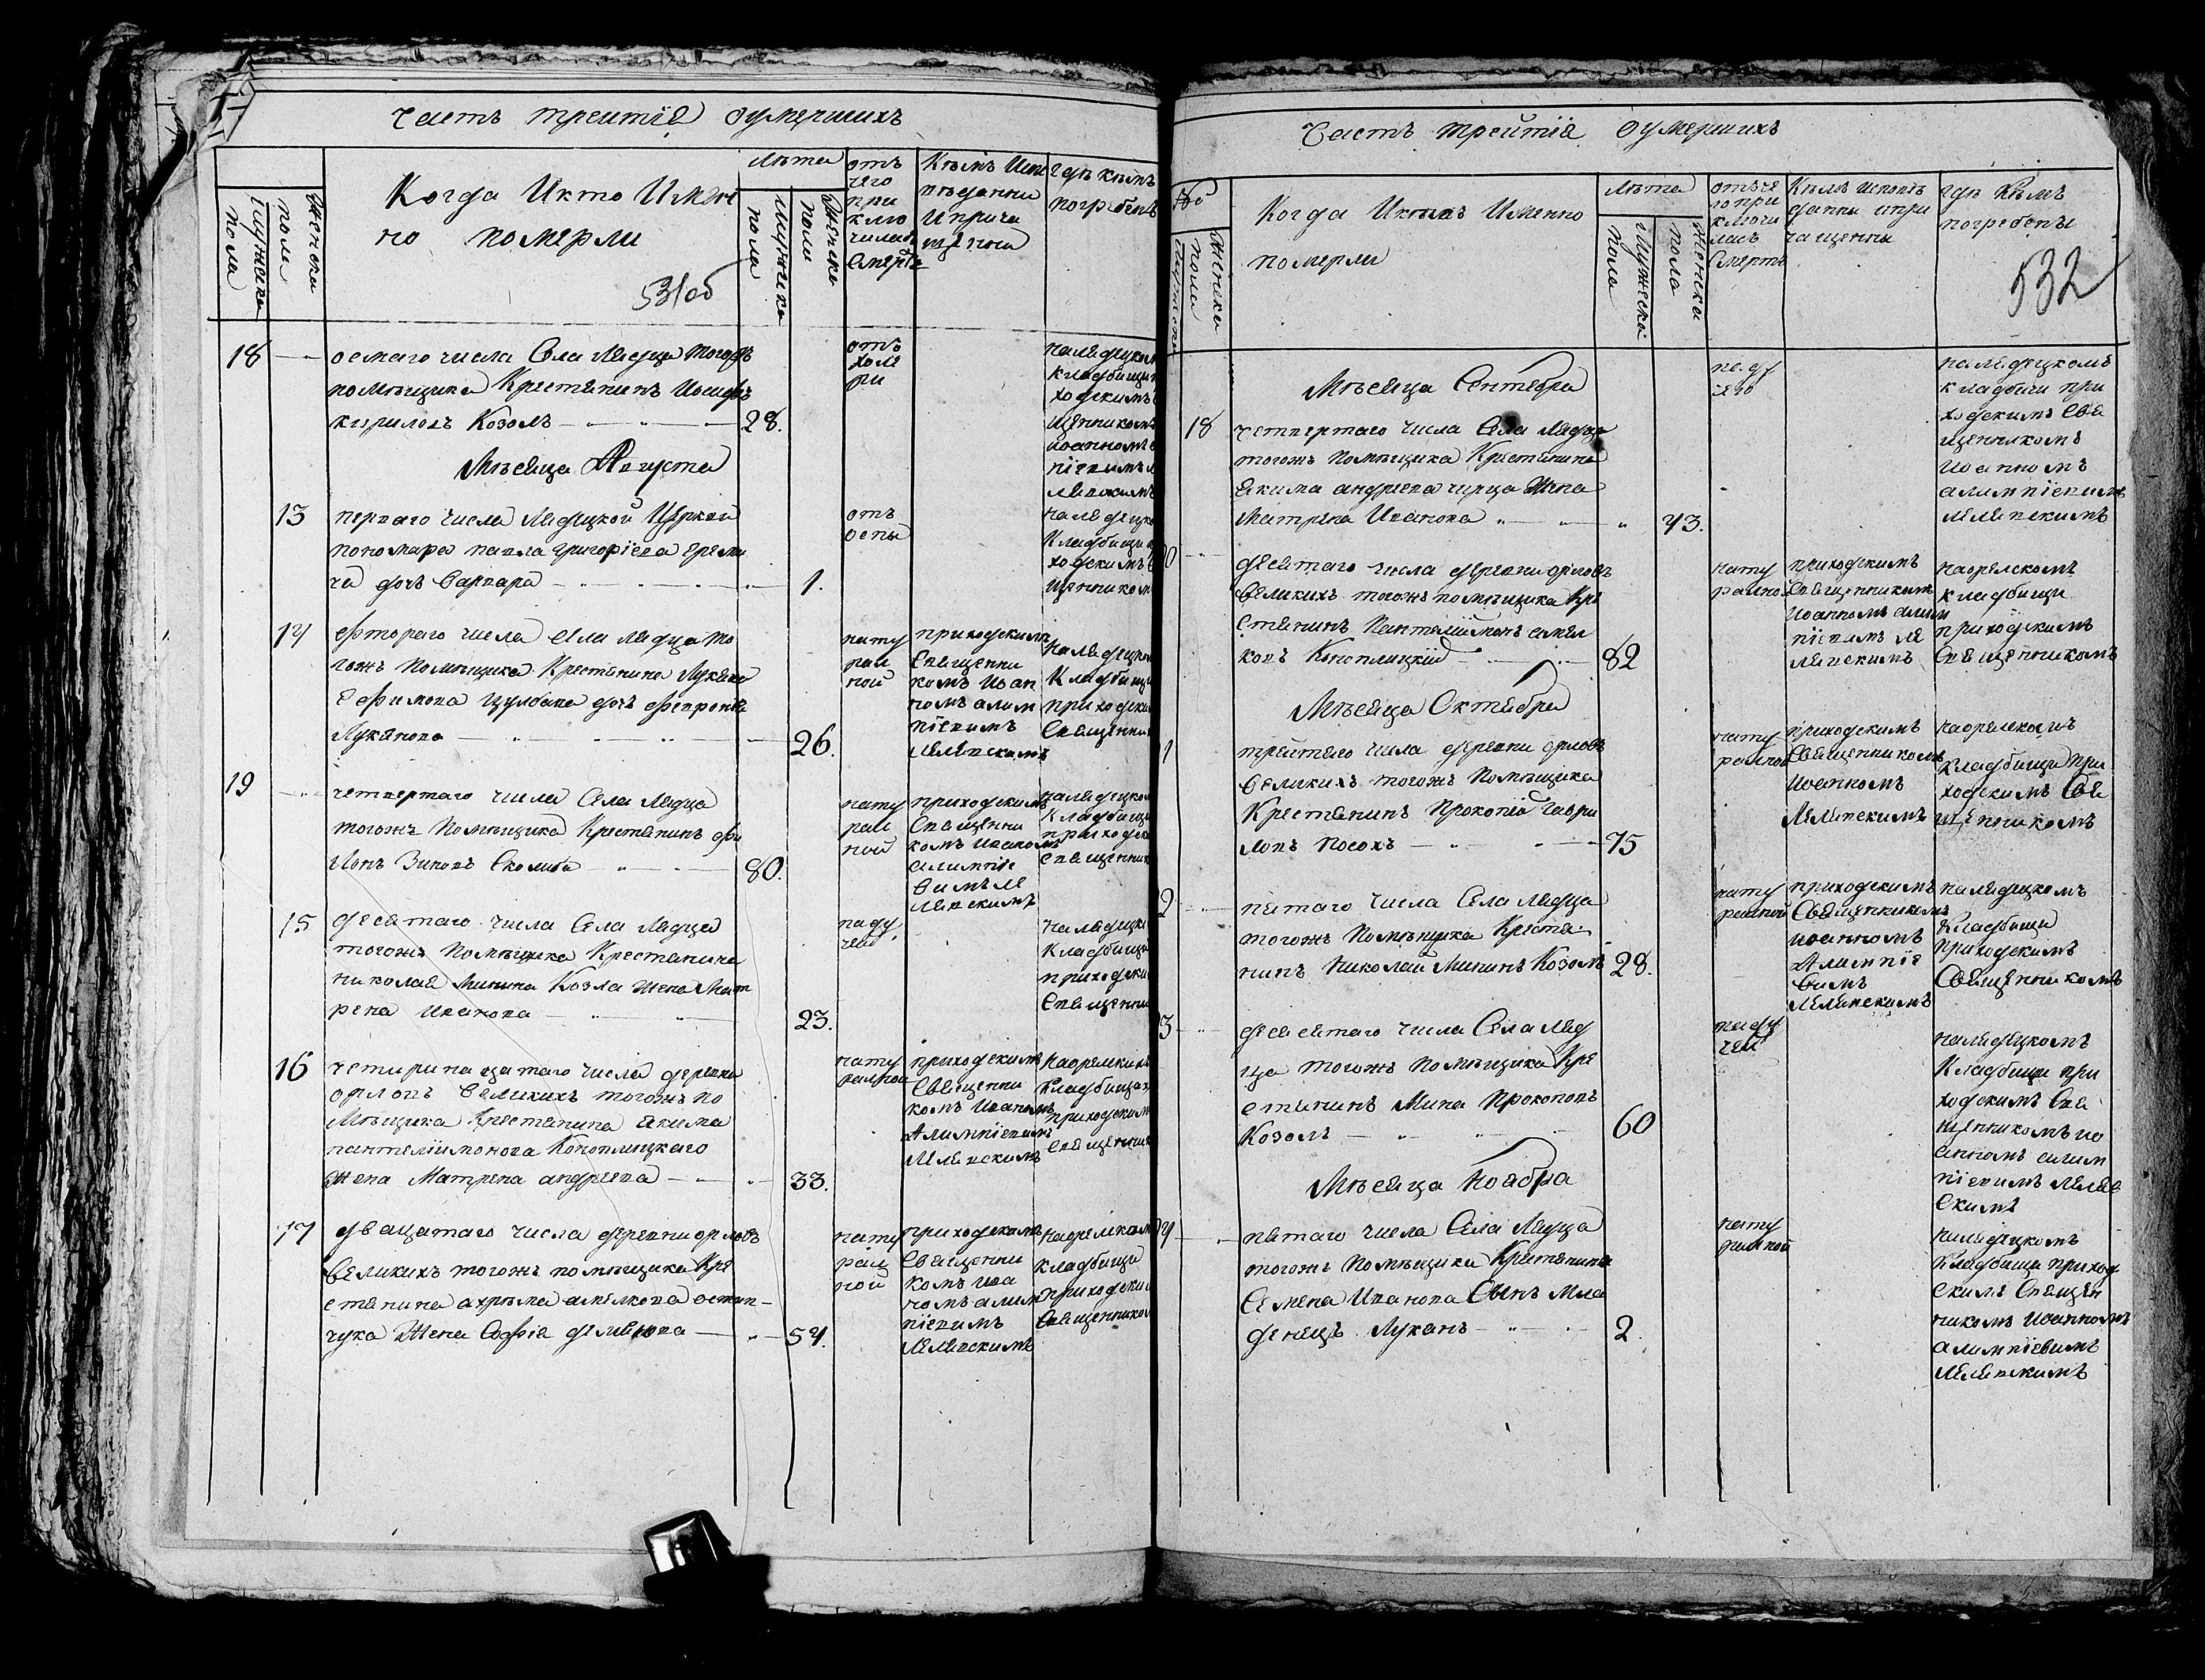 Часть третія оумершихъ
Когда Икто Имен
но померли
531об
мужеска пола
женска пола
лѣта
мужеска пола
женска пола
отъ
чего
при
клю
чилась
смерть
Кѣмъ Испо
вѣданы
И прича
щены
гдѣ кѣмъ
погребены
18
осмаго числа Села Лядца тогожъ
помѣщика Крестянинъ Иосифъ
кириловъ Козолъ 28.
отъ
холе
ри
наледецком
кладбищи
ходскимъ
щенникомъ
иоанномъ
Мѣсяца Августа
13
перваго числа Лядецкой Церкви
пономара павла григорїева ереми
ча дочь Варвара 1.
отъ
оспы
наледецко
Кладбищи
ходскимъ
щенником
14
второго числа села лядца то
гожъ помѣщика Крестянина Лукяна
Ефимова Цулбака дочь Февронїя
Лукянова 26.
нату
рал
ной
приходским
Священни
комъ Иоан
номъ алим
пїевимъ
Лелявскимъ
наледецком
Кладбищи
приходски
Священни
19
четвертаго числа Села Лядца
тогожъ Помѣщика Крестянинъ
Зиновъ 80.
нату
рал
ной
приходскимъ
Священни
комъ иоаном
алимпїе
вимъ ле
лявскимъ
наледецком
Кладбищи
приходски
священник
15
десятаго числа Села Лядца
тогожъ Помѣщика Крестянина
николая Минина Козла жена Мат
рена Иванова 23.
паду
чей
наледецко
Кладбищи
приходски
Священни
16
четирнацатаго числа деревни
орловъ Великихъ тогожъ по
мѣщика Крестянина Якима
пантелїимонова Коноплицкаго
жена Матрена андреева 33.
нату
ралной
приходскимъ
Священни
комъ Иваномъ
Алимпїевимъ
Лелявскимъ
наорлскихъ
Кладбищах
приходским
священник
17
двацатаго числа деревни орловъ
Великихъ тогожъ помѣщика Кре
стянина ахрѣма амелкова остап
чука Жена Софїя 54.
нату
рал
ной
приходскимъ
Священни
комъ иоа
номъ алим
пїевимъ
Лелявскимъ
наорлском
кладбищи
приходским
Священником
Часть третїя оумершихъ
Когда Икто Именно
померли
женска пола
лѣта
Мужеска пола
женска пола
отъ че
го при
ключи
лась
Смерть
Кѣмъ исповѣ
данны ипри
чащенны
гдѣ Кѣмъ
погребены
532
Мѣсяца Сентября
18
четвертаго числа Села Лядца
тогожъ Помѣщика Крестянина
Якима андреева жена
Матрена Иванова 43.
паду
чей
наледецкомъ
кладбищи при
ходскимъ Свя
щенникомъ
иоанномъ
алимпїевимъ
лелявскимъ
десятаго числа деревни орловъ
Великихъ тогожъ помѣщика Кре
стянинъ Пантелїймонъ амел
ковъ Коноплицкїй 82
нату
ралной
приходскимъ
Священникомъ
Иоанномъ алим
пїевимъ ле
лявскимъ
наорелскомъ
кладбищи
приходскимъ
Священникомъ
Мѣсяца Октября
1
третяго числа деревни орловъ
Великихъ тогожъ помѣщика
Крестянинъ Прокопїй Гаври
ловъ Посохъ 75
нату
ралной
приходскимъ
Священникомъ
Иоанномъ
Лелявскимъ
наорелскомъ
Кладбищи при
ходскимъ Свя
щенникомъ
2
пятаго числа Села Лядца
тогожъ Помѣщика Крестя
нинъ Николай Мининъ Козолъ 28.
нату
ралной
приходскимъ
Священникомъ
иоанномъ
Алимпїе
вимъ
Лелявскимъ
наледецкомъ
Кладбищи
приходскимъ
Священникомъ
3
девятаго числа Села Ляд
ца тогожъ помѣщика Кре
стянинъ Мина Прокоповъ
Козолъ 60
паду
чей
наледецкомъ
Кладбищи при
ходскимъ Свя
щенникомъ ио
анномъ алим
пїевимъ лелев
скимъ
Мѣсяца Ноября
4
пятаго числа Села Лядца
тогожъ Помѣщика Крестянина
Семена Иванова Сынъ Мла
денецъ Луканъ 2.
нату
ралной
наледецкомъ
Кладбищи приход
скимъ Священ
никомъ Иоанномъ
алимпїевимъ
Лелявскимъ